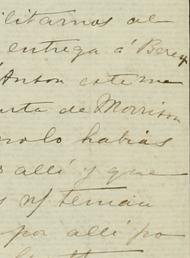 ilitarnos al
entrega á Berey
Anson este me
rta de Morrison
nolo habias
allí y que
s n/ tenian
por allí po